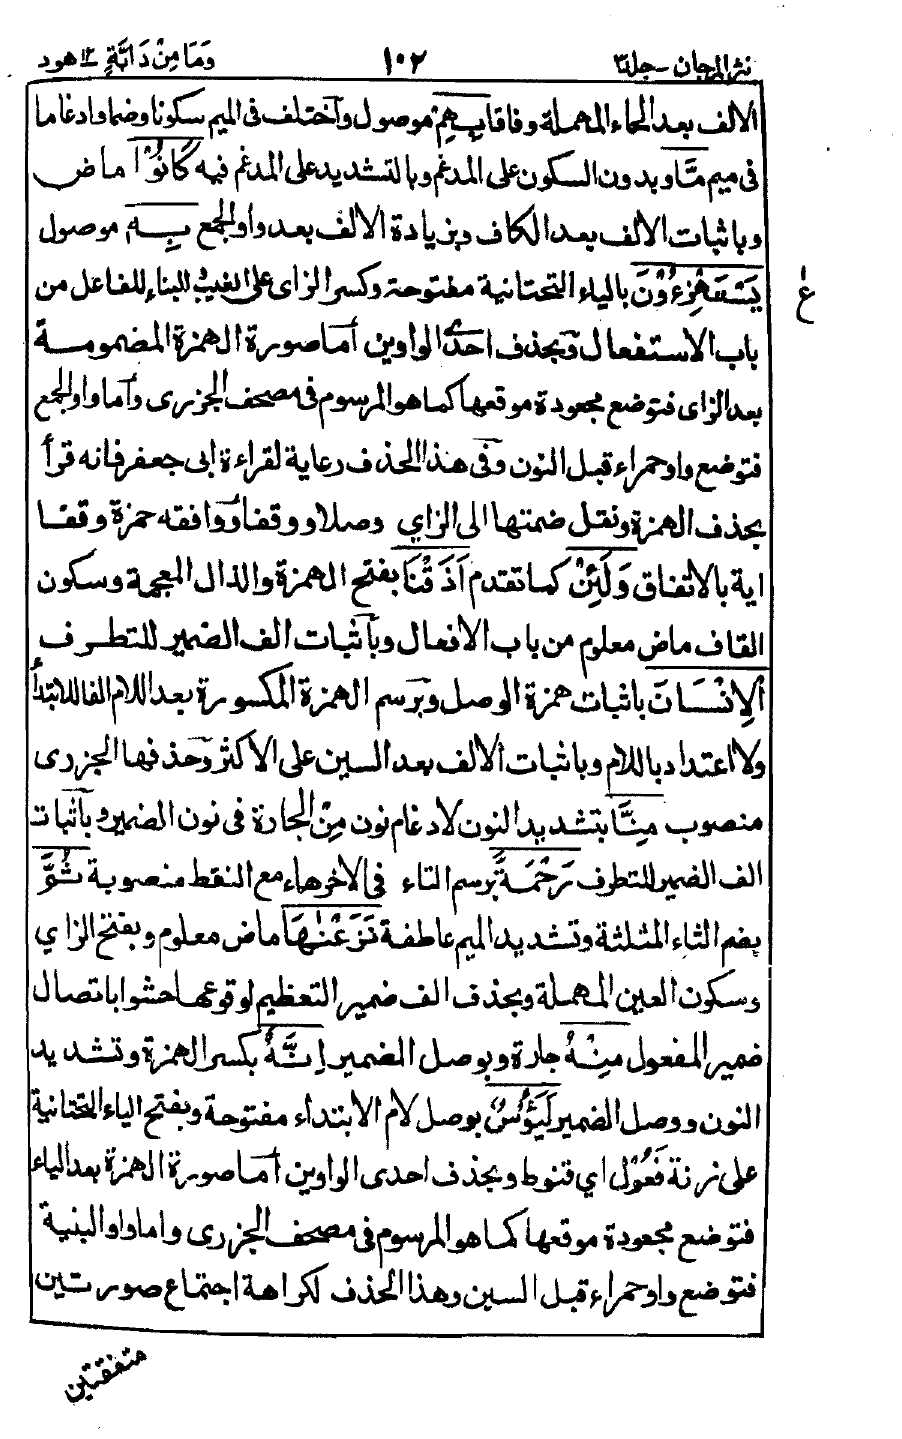 نثر المرجان - جلد ٣
١٠٢
وَمَا مِنْ دَابَّةٍ ١٢ هود
الالف بعد الحاء المهملة وفاقا بِهِمْ موصول واختلف فى الميم سكونا وضما وادغاما
فى ميم مَّا وبدون السكون على المدغم وبالتشديد على المدغم فيه كَانُوْا ماض
وباثبات الالف بعد الكاف وبزيادة الالف بعد واو الجمع بِهٖ موصول
يَسْتَهْزِءُوْنَ بالياء التحتانية مفتوحة وكسر الزاى على الغيب البناء للفاعل من
باب الاستفعال وبحذف احدى الواوين اما صورة الهمزة المضمومة
بعد الزاى فتوضع مجعودة موقعها كما هو المرسوم فى مصحف الجزرى واما واو الجمع
فتوضع واو حمراء قبل النون وفى هذا الحذف رعاية لقراءة ابى جعفر فانه قرأ
بحذف الهمزة ونقل ضمتها الى الزاي وصلا ووقفا ووافقه حمزة وقفا
اية بالاتفاق وَلَئِنْ كما تقدم اَذَقْنَا بفتح الهمزة والذال المعجمة وسكون
القاف ماض معلوم من باب الافعال وباثبات الف الضمير للتطرف
الْاِنْسَانَ باثبات همزة الوصل وبرسم الهمزة المكسورة بعد اللام الفا للابتدأ
ولا اعتداد باللام وباثبات الالف بعد السين على الاكثر وحذفها الجزرى
منصوب مِنَّا بتشديد النون لادغام نون مِنْ الجارة فى نون الضمير وباثبات
الف الضمير للتطرف رَحْمَةً برسم التاء فى الاخر هاء مع النقط منصوبة ثُمَّ
بضم الثاء المثلثة وتشديد الميم عاطفة نَزَعْنٰهَا ماض معلوم وبفتح الزاي
وسكون العين المهملة وبحذف الف ضمير التعظيم لوقوعها حشوا باتصال
ضمير المفعول مِنْهُ جارة وبوصل الضمير اِنَّهٗ بكسر الهمزة وتشديد
النون ووصل الضمير لَيَئُوْسٌ بوصل لام الابتداء مفتوحة وبفتح الياء التحتانية
على زنة فَعُوْل اي قنوط وبحذف احدى الواوين اما صورة الهمزة بعد الياء
فتوضع مجعودة موقعها كما هو المرسوم فى مصحف الجزرى واما واو البنية
فتوضع واو حمراء قبل السين وهذا الحذف لكراهة اجتماع صورتين
متفقتين
ع